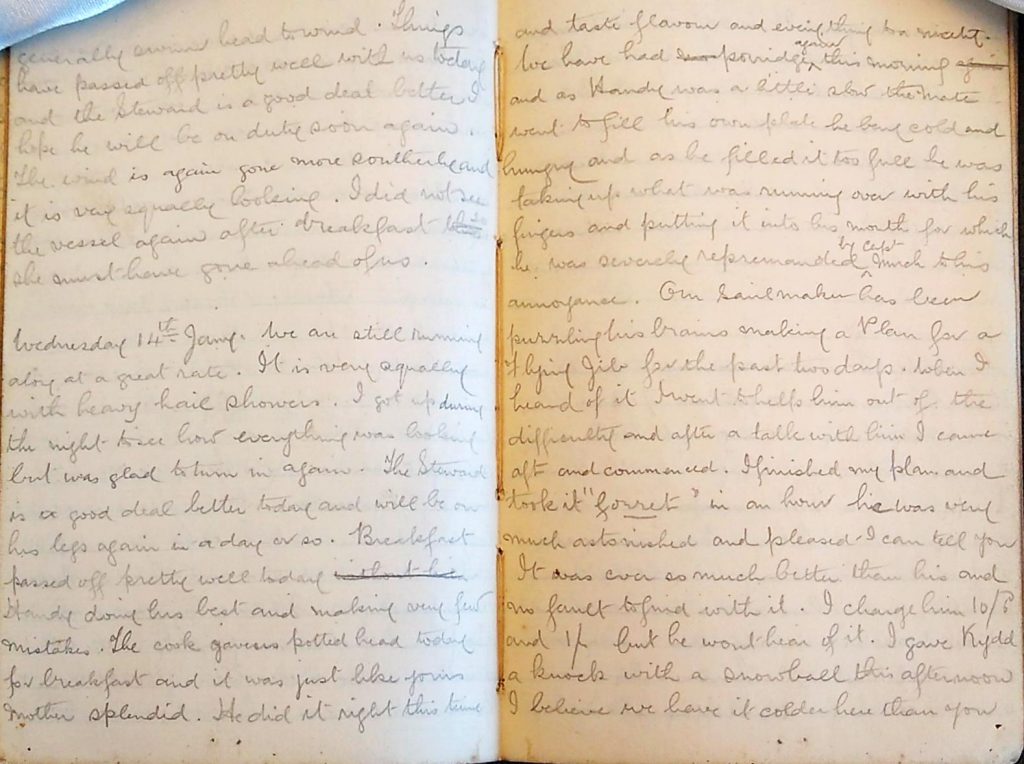 generally swinn head to wind. Things
have passed off pretty well with us today
and the Steward is a good deal better I
hope he will be on duty soon again.
The wind is again gone more southerly and
it is very squally looking. I did not see
the vessel again after breakfast so
she must have gone ahead of us.
Wednesday 14th Jany. We are still running
along at a great rate. It is very squally
with heavy hail showers. I got up during
the night to see how everything was looking
but was glad to turn in again. The Steward
is a good deal better today and will be on
his legs again in a day or so. Breakfast
passed off pretty well today without his
Handy doing his best and making very few
mistakes. The cook gave us potted head today
for breakfast and it was just like yours
Mother splendid. He did it right this time
and taste flavour and everything to a nicety.
We have had porridge again this morning again
and as Handy was a little slow the mate
went to fill his own plate he being cold and
hungry and as he filled it too full he was
taking up what was running over with his
fingers and putting it into his mouth for which
he was severely repremanded by capt much to his
annoyance. Our Sailmaker has been
puzzling his brains making a Plan for a
Flying Jib for the past two days. When I
heard of it I went to help him out of the
difficulty and after a talk with him I came
aft and commenced. I finished my plan and
took it "forret" in an hour he was very
much astonished and pleased I can tell you
It was ever so much better than his and
no fault to find with it. I charge him 10/6
and 1/- but he wont hear of it. I gave Kydd
a knock with a snowball this afternoon
I believe we have it colder here than you